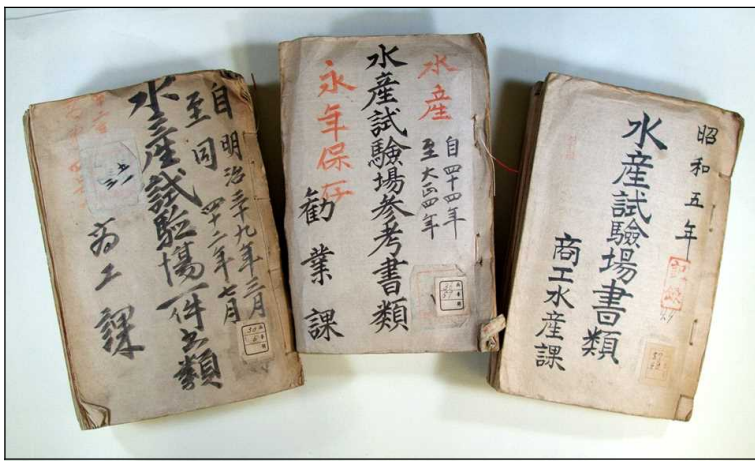 自明治三十九年三月
至同四十二年七月
水産試験場一件書類
商工課
水産
自四十四年
至大正四年
水産試驗場参考書類
永年保存
勧業課
昭和五年
水産試驗場書類
商工水産課